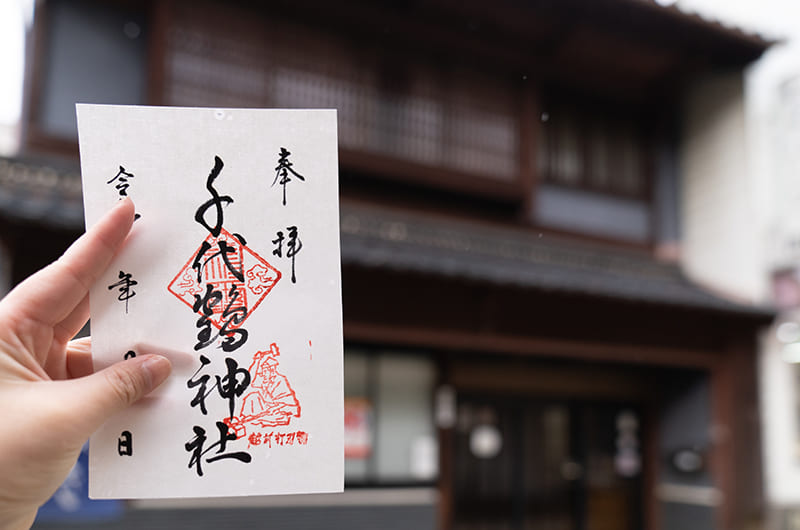 奉拝
千代鶴神社
令
年
日